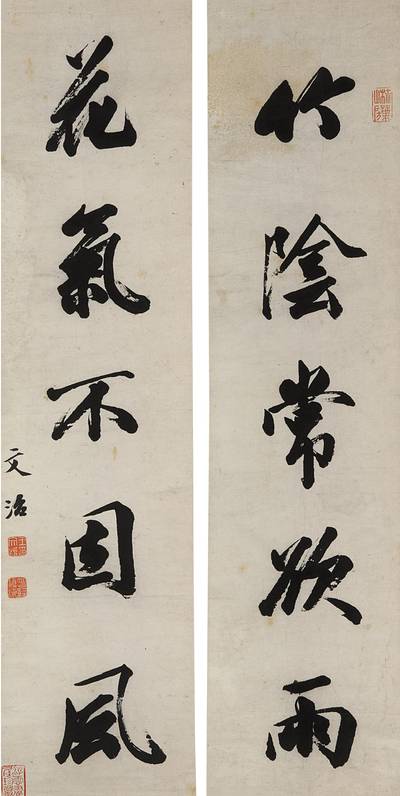 竹陰常欲雨
花氣不因風
文治